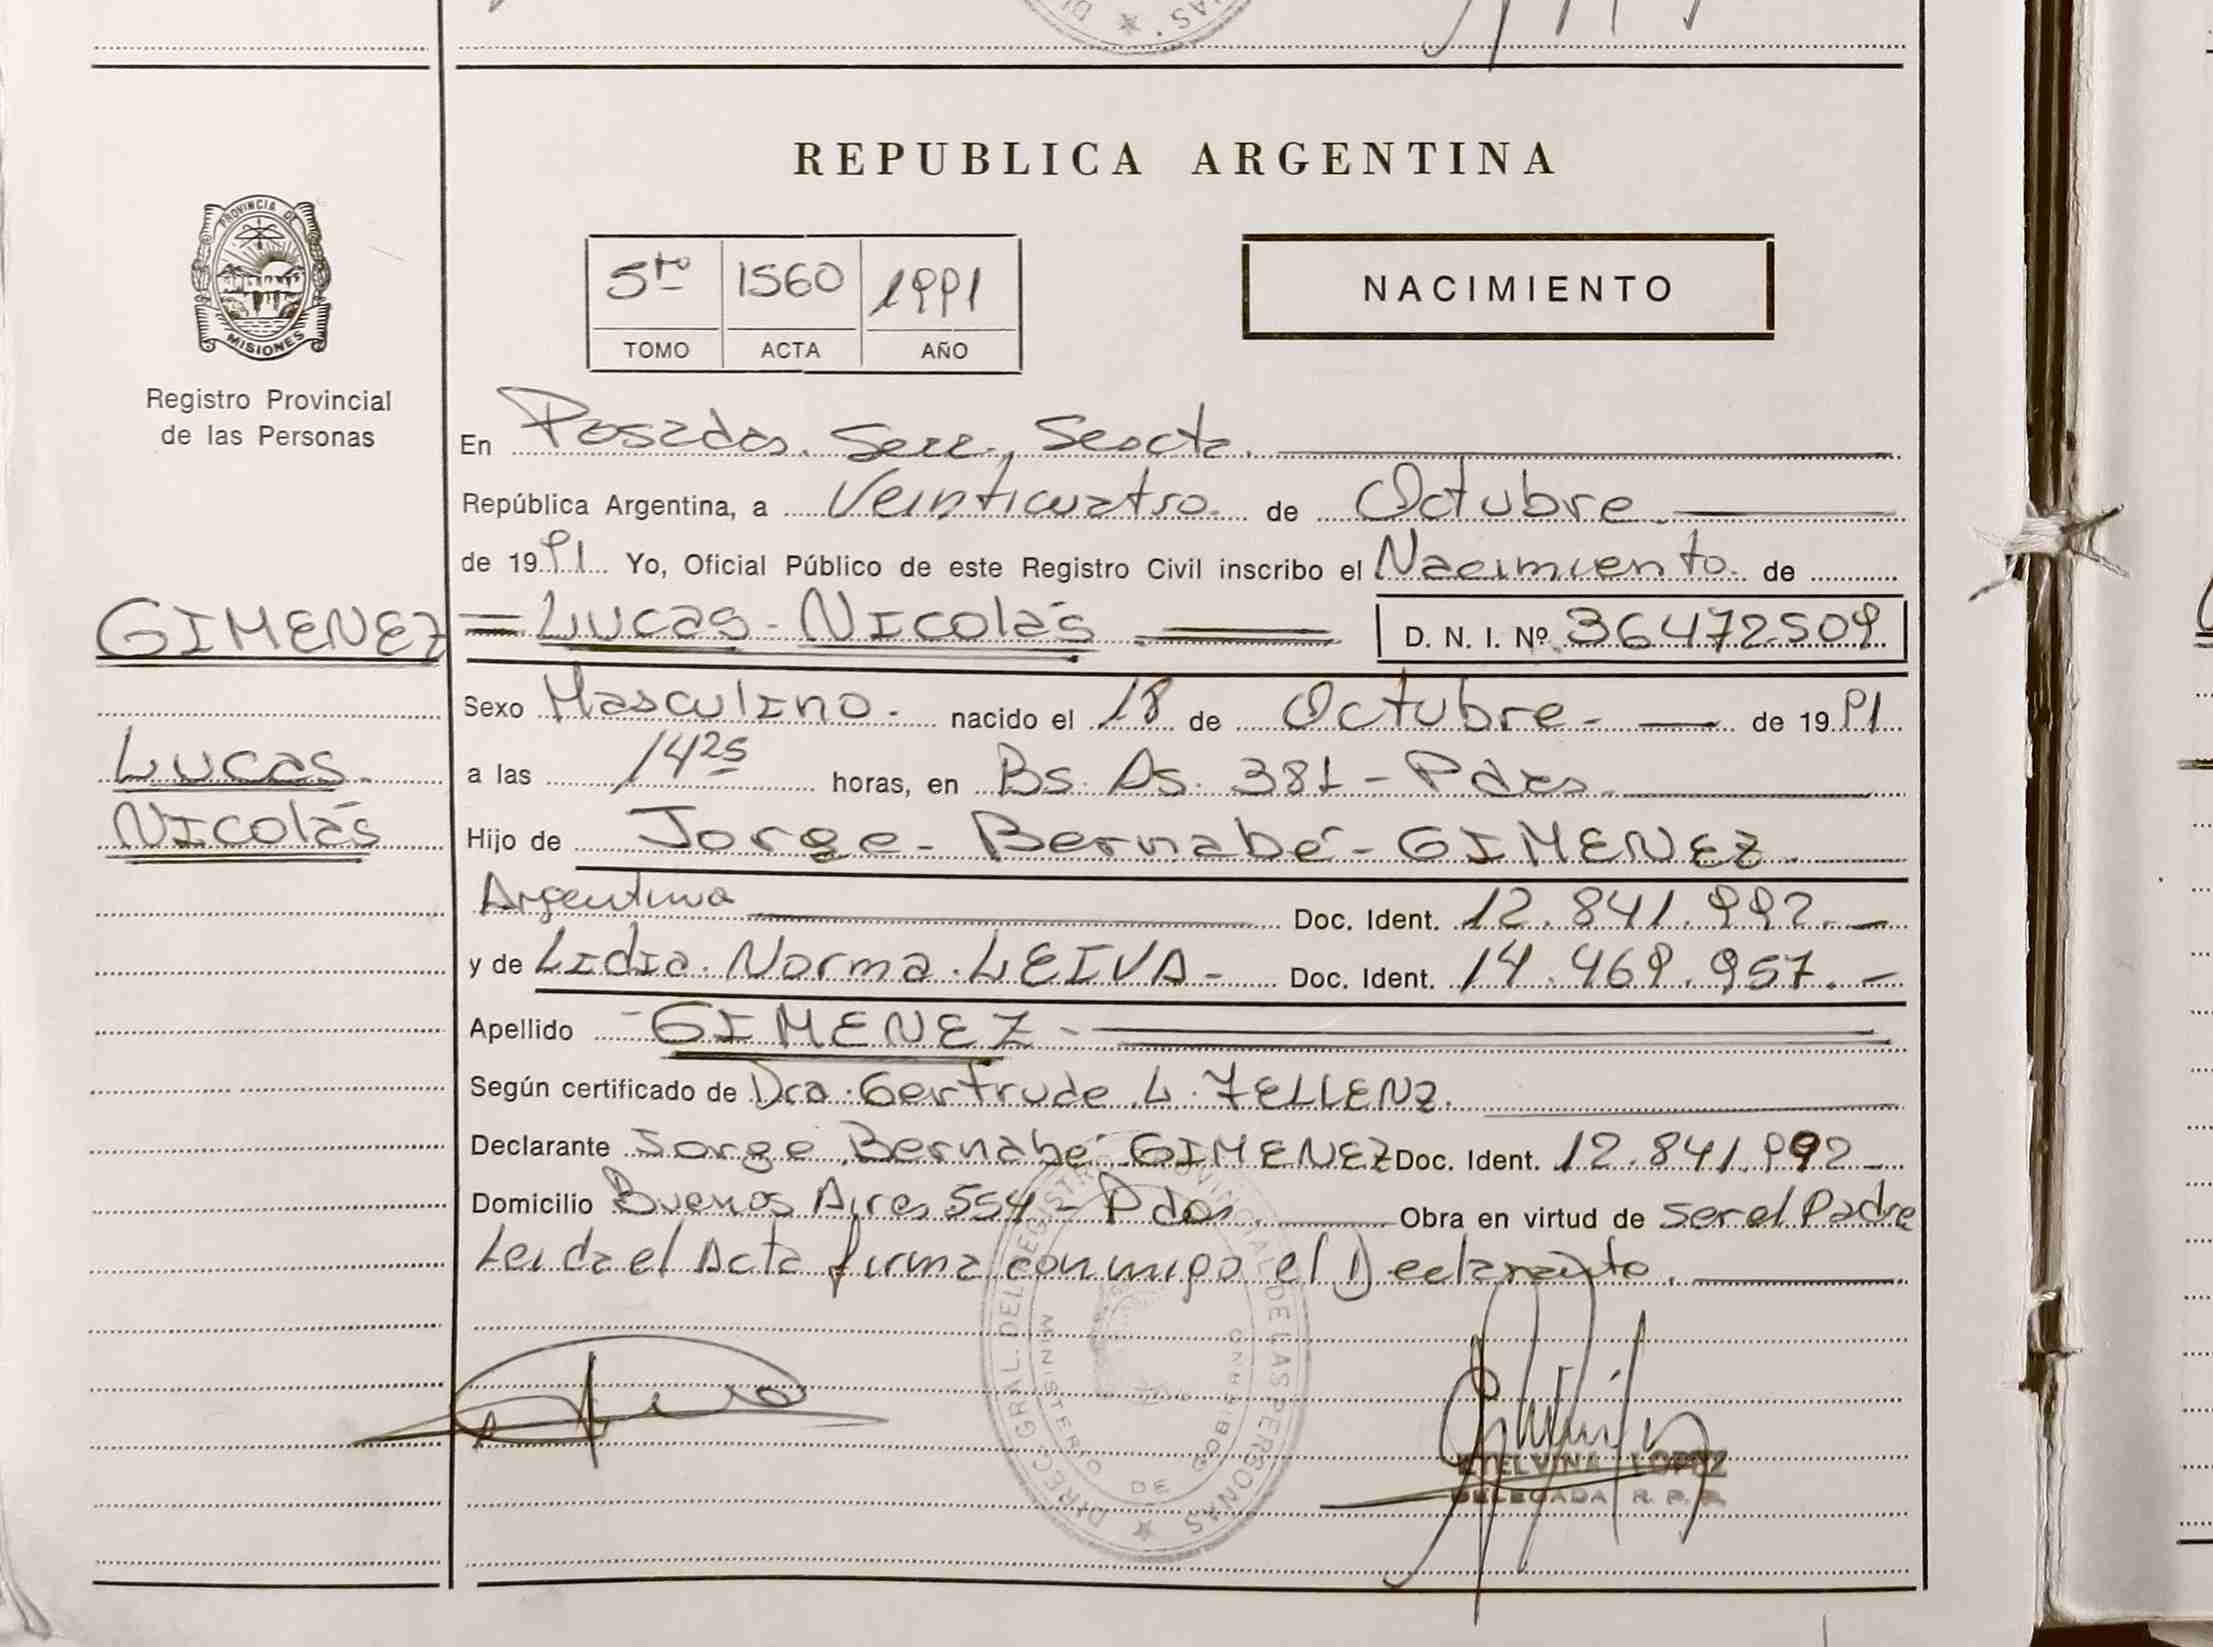 REPUBLICA ARGENTINA
PROVINCIA DE
MISIONES
Registro Provincial
de las Personas
5to 1560 1991
TOMO ACTA AÑO
NACIMIENTO
En Posadas. Secc., Sexcta.
República Argentina, a Veinticuatro de Octubre.
de 1991 Yo, Oficial Público de este Registro Civil inscribo el Nacimiento de
GIMENEZ
Lucas
Nicolás
Lucas - Nicolás. D. N. I. Nº 36472509
Sexo Masculino. nacido el 18 de Octubre- de 1991
a las 14 25 horas, en Bs. As. 381 - Pdas.
Hijo de Jorge - Bernabé - GIMENEZ.
Argentina Doc. Ident. 12.841.992.-
y de Lidia. Norma. LEIVA - Doc. Ident. 14.469.957.-
Apellido - GIMENEZ -
Según certificado de Dra. Gertrude L. ZELLENZ.
Declarante Jorge Bernabé GIMENEZ Doc. Ident. 12.841.992-
Domicilio Buenos Aires 554 - Pdas. Obra en virtud de ser el Padre
Leida el Acta firma conmigo el Declarante.
DIREC. GRAL. DEL REGISTRO PROVINCIAL DE LAS PERSONAS
MINISTERIO DE GOBIERNO
ETELVINA LOPEZ
DELEGADA R. P. P.